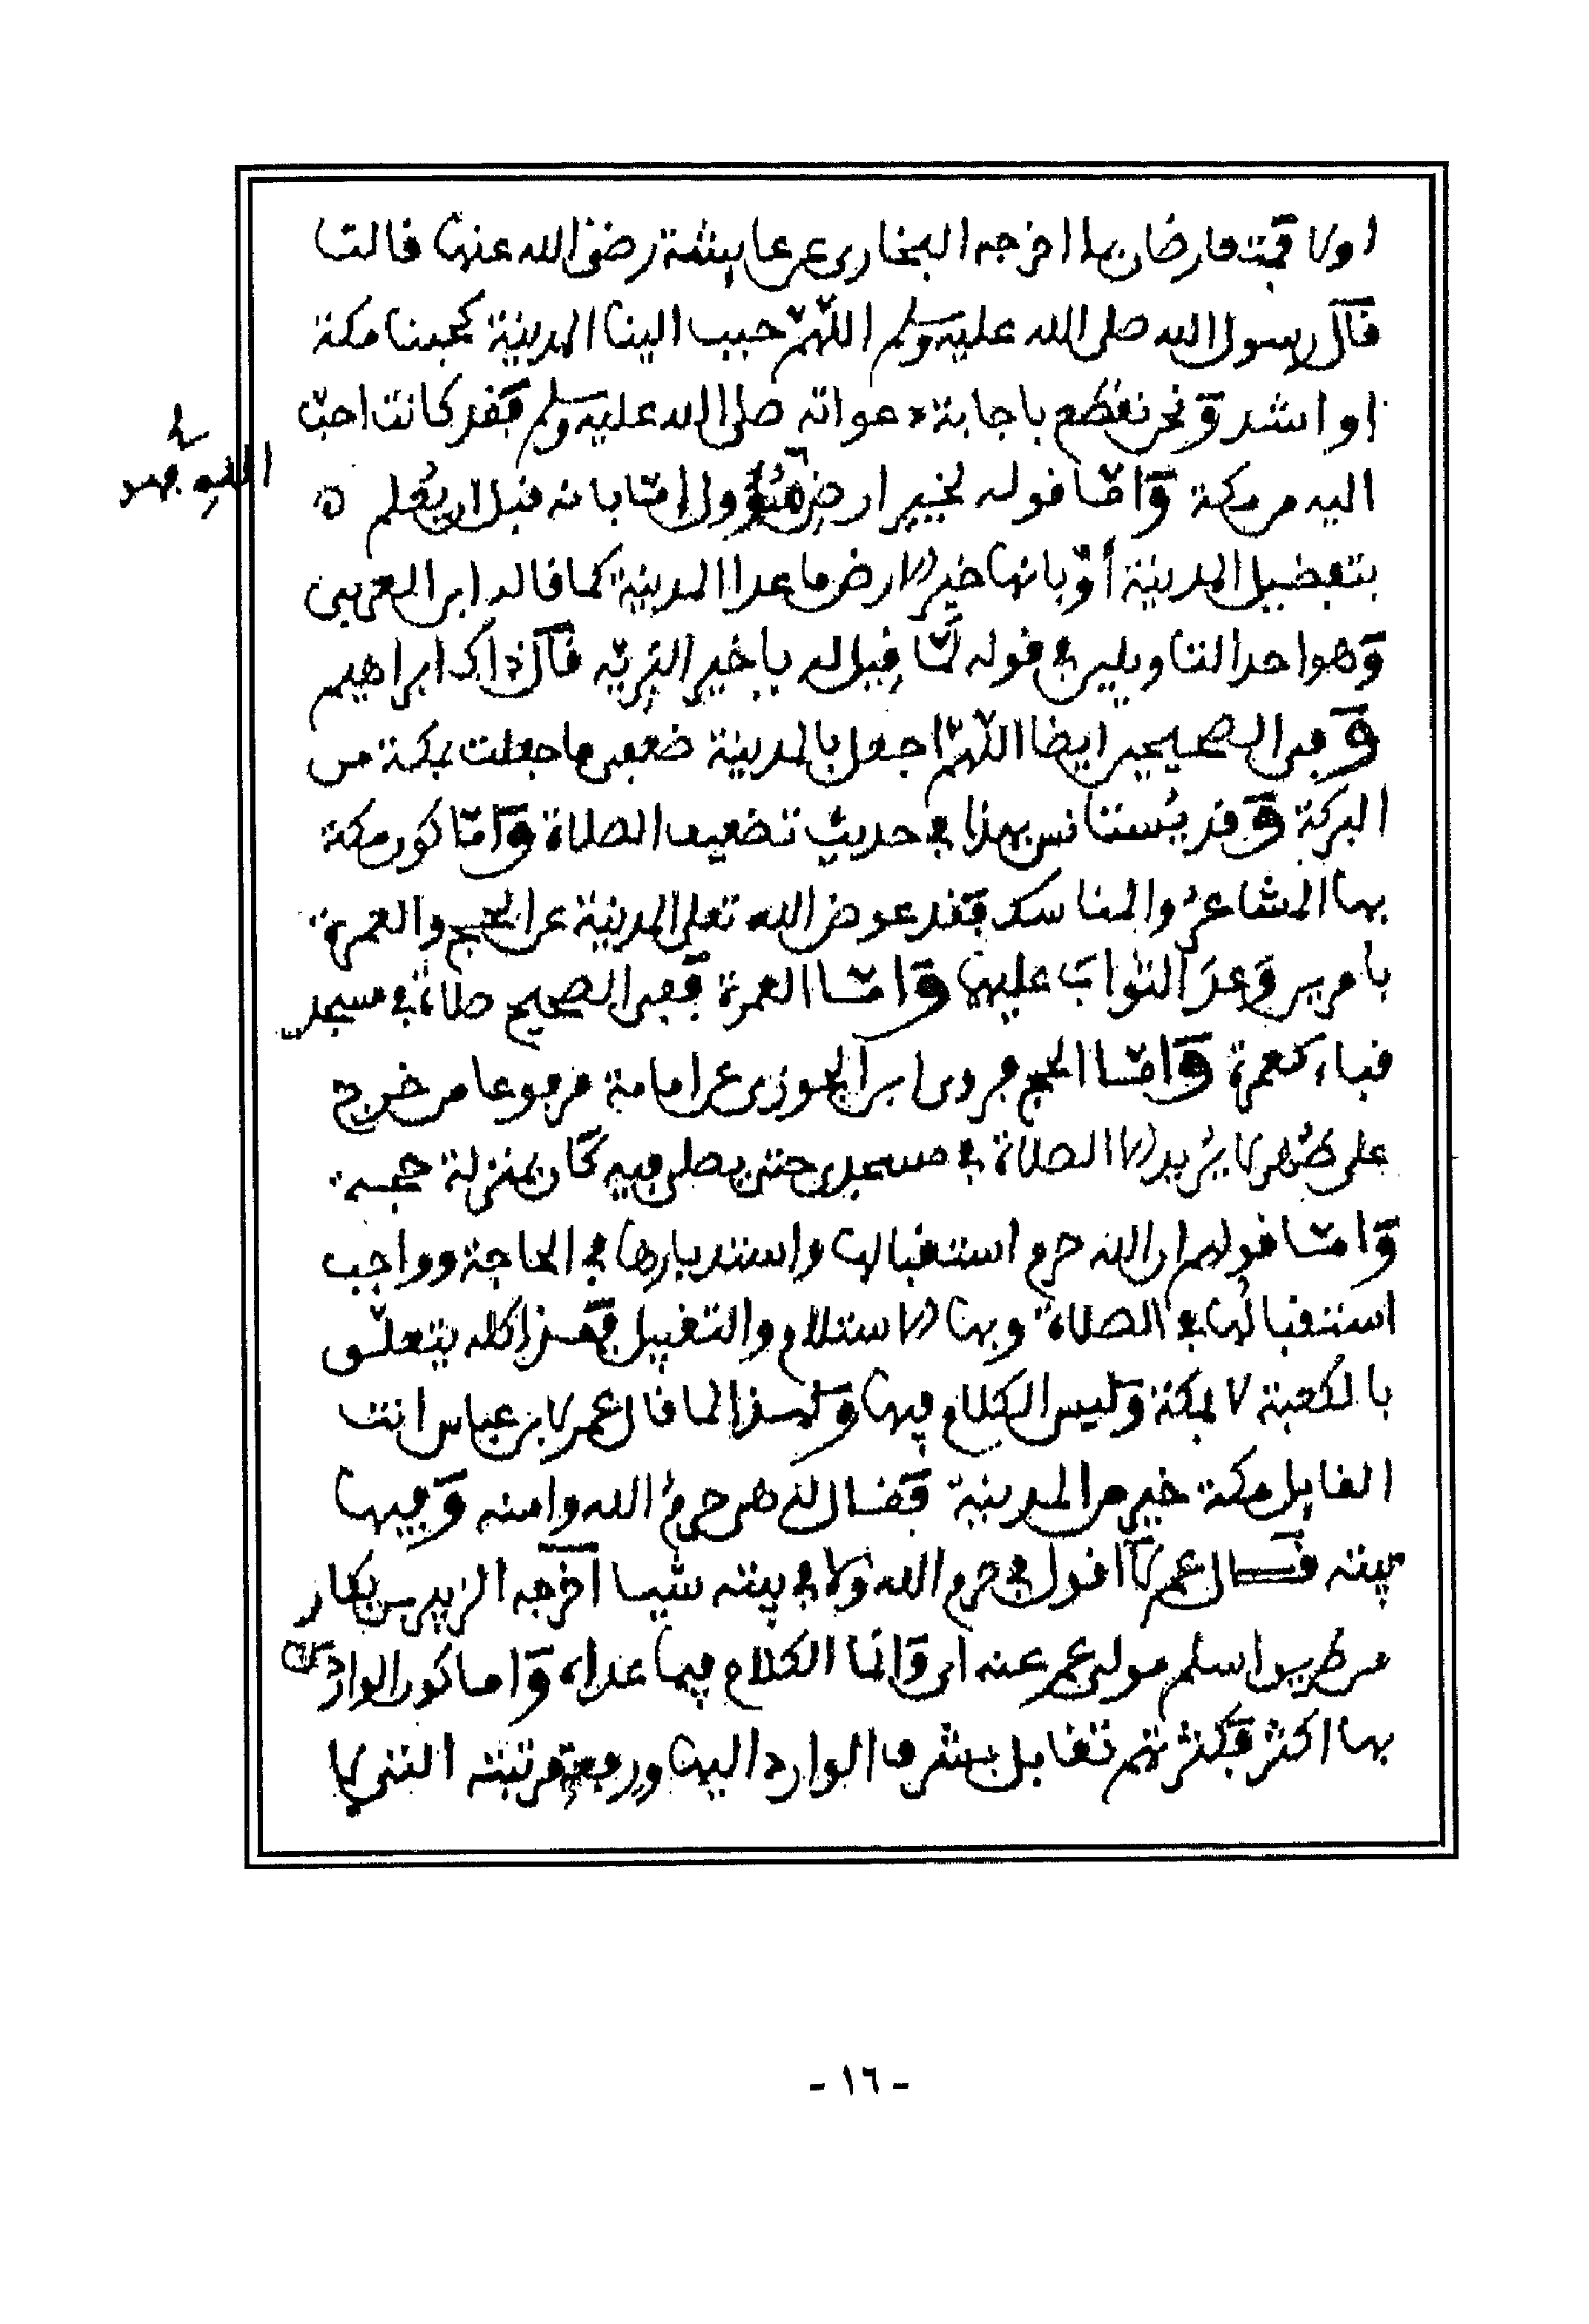 اولا قمتعارضان بما اخرجه البخاري عن عايشة رضى الله عنها قالت
قال رسول الله صلى الله عليه وسلم اللهم حبب الينا المدينة كحبنا مكة
او اشد ونحن نقطع باجابة دعواته صلى الله عليه وسلم فقد كانت احب
اليه من مكة واما قوله لخير ارض الله فهو مؤول اما بانه قبل ان يعلم ٥
بتفضيل المدينة أو بانها خير الارض ما عدا المدينة كما قاله ابن العربي
وهو احد التاويلين في قوله لما قيل له يا خير البرية قال ذاك ابراهيم
وفي الصحيحين ايضا اللهم اجعل بالمدينة ضعفي ما جعلت بمكة من
البركة وقد يستانس بهذا في حديث تضعيف الصلاة واما كون مكة
بها المشاعر والمناسك فقد عوض الله تعلى المدينة عن الحج والعمرة
بامرين وعد الثواب عليها واما العمرة ففي الصحيح صلاة في مسجد
قباء كعمرة واما الحج فروى ابن الجوزي عن امامة مرفوعا من خرج
على طهر لا يريد الا الصلاة في مسجدي حتى يصلي فيه كان بمنزلة حجة
واما قولهم ان الله حرم استقبالها واستدبارها في الحاجة وواجب
استقبالها في الصلاة وبها الاستلام والتقبيل فهذا كله يتعلق
بالكعبة لا بمكة وليس الكلام فيها ولهذا لما قال عمر لابن عباس انت
القايل مكة خير من المدينة فقال له هي حرم الله وامنه وفيها
بيته فقال عمر لا اقول في حرم الله ولا في بيته شيا اخرجه الزبير بن بكار
من طريق اسلم مولى عمر عنه اى وانما الكلام فيما عداه واما كون الوارد
بها اكثر فكثرتهم تقابل بشرف الوارد اليها ورفعة مرتبته التي لا
- ١٦ -